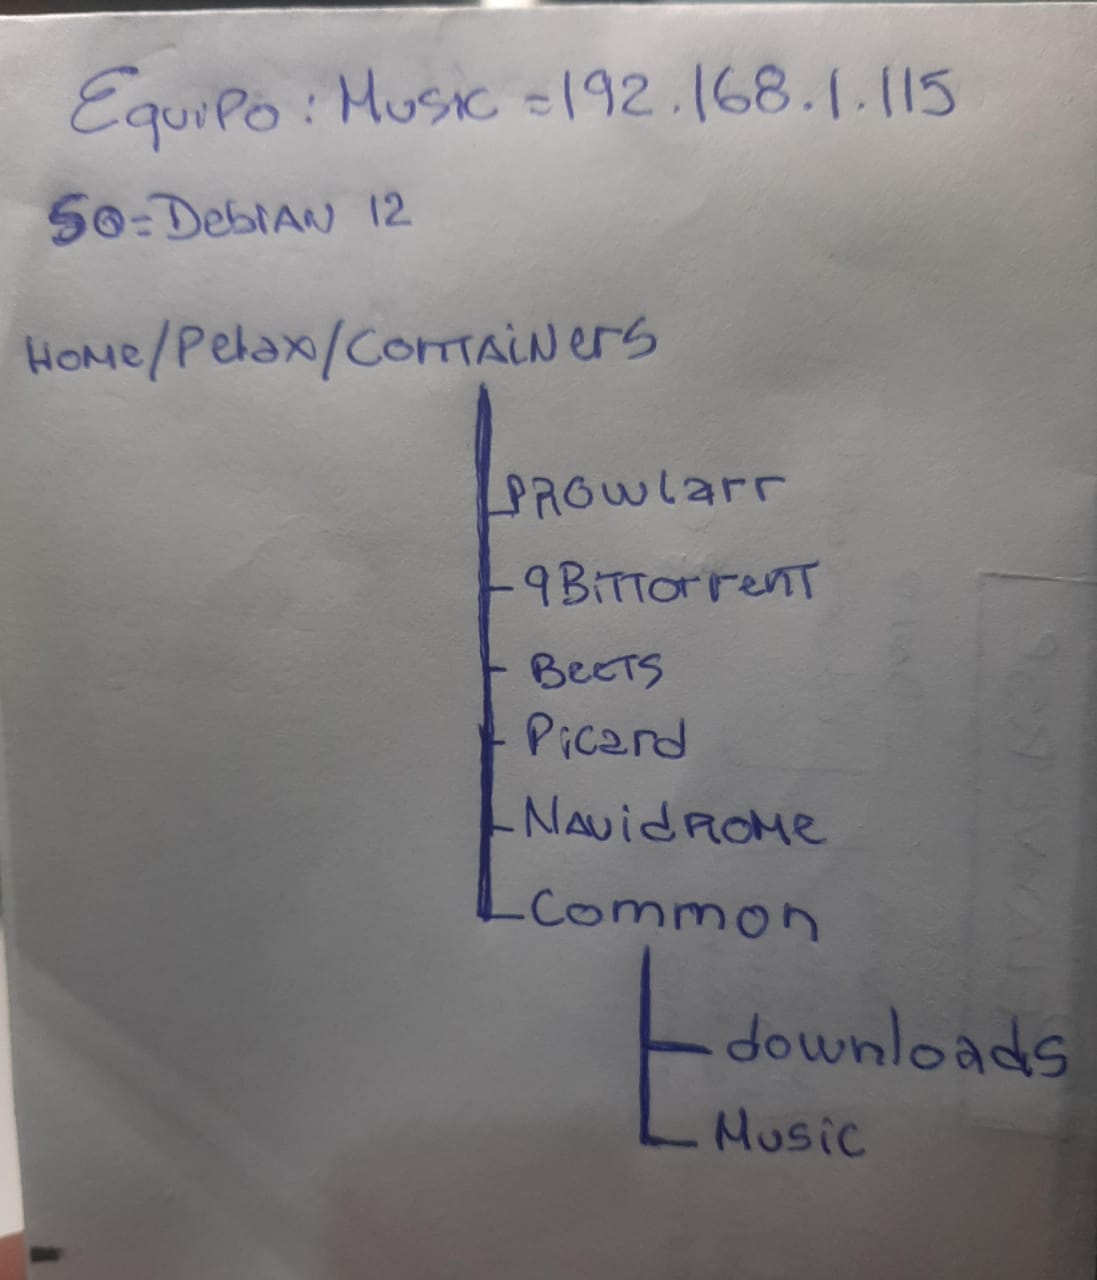 Equipo: Music = 192.168.1.115
SO = Debian 12
Home/Petax/Containers
Prowlarr
qBittorrent
Beets
Picard
Navidrome
Common
downloads
Music